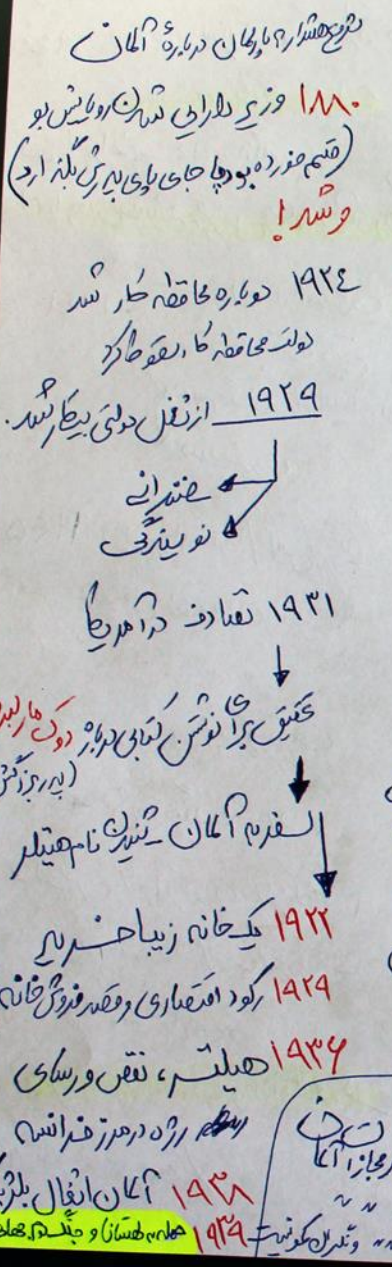 شروع هشدار به پارلمان دربارهٔ آلمان
۱۸۸۰ وزیر دارایی شدن رویایش بو
(قسم خورده بود پا جای پای پدرش بگذارد)
و شد!
۱۹۲٤ دوباره محافظه کار شد
دولت محافظه کار سقوط کرد
۱۹۲۹ از شغل دولتی بیکار شد.
سخنرانی
نویسندگی
۱۹۳۱ تصادف در آمریکا
تحقیق برای نوشتن کتابی درباره دوک مارلبر
(پدربزرگش
سفر به آلمان - شنیدن نام هیتلر
۱۹۲۲ یک خانه زیبا خرید
۱۹۲۹ رکود اقتصادی و قصد فروش خانه
۱۹۳۶ هیتلر، نقض ورسای
رژه در مرز فرانسه
۱۹۳۸ آلمان اشغال
۱۹۳۹ حمله به لهستان و جنگ دوم جهانی